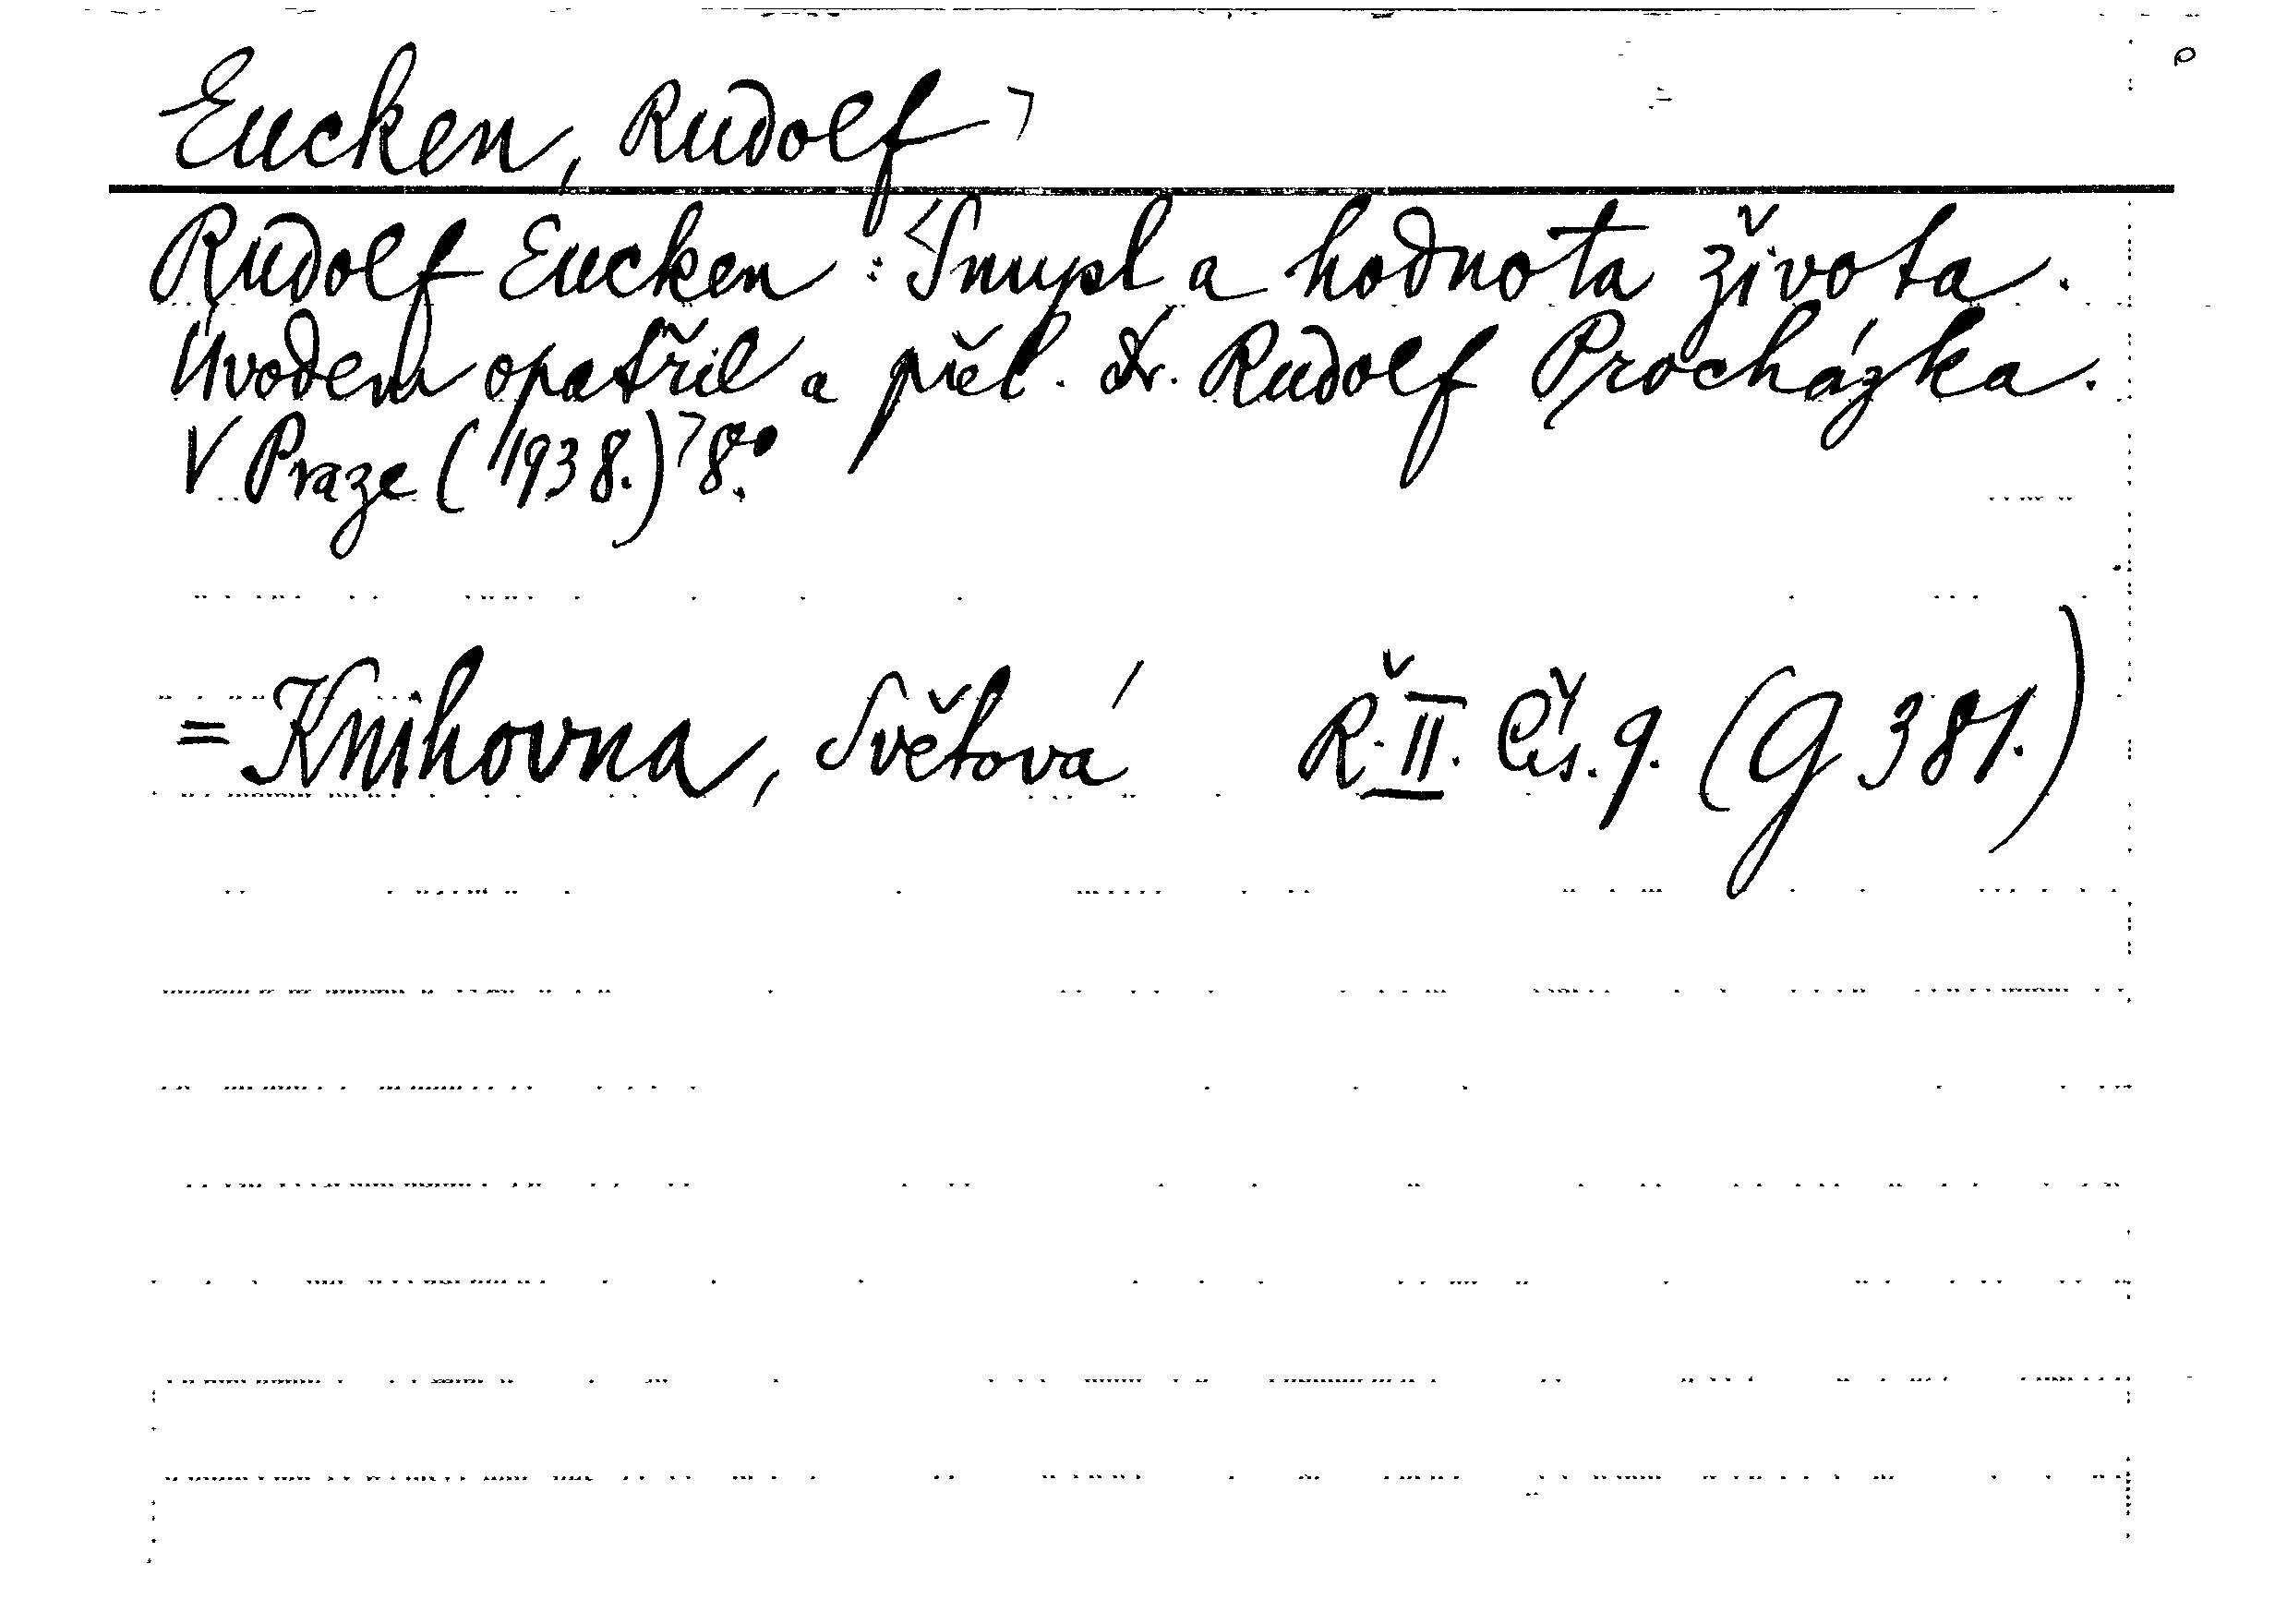 Eucken, Rudolf
Rudolf Eucken: Smysl a hodnota života.
Úvodem opatřil a přel. Dr. Rudolf Procházka.
V Praze (1938.) 8°.
= Knihovna, Světová Ř. II. Čís. 9. (G 381.)